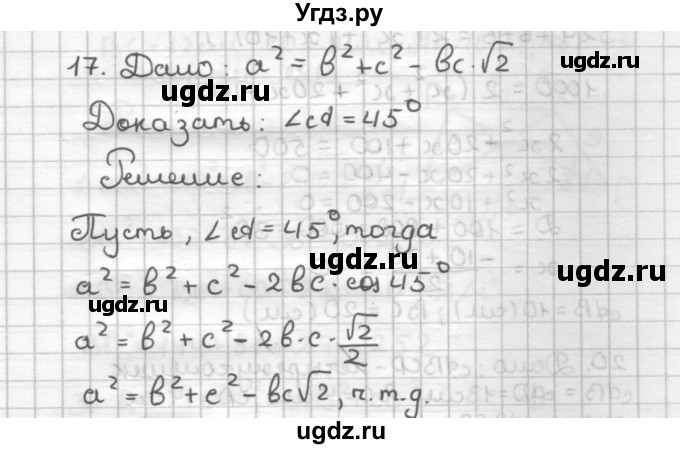 Угдз.ру
17. Дано: a² = b² + c² - bc·√2
ugdz.ru ugdz.ru
Доказать: ∠A = 45°
Решение:
Пусть, ∠A = 45°, тогда
ugdz.ru
a² = b² + c² - 2bc·cos 45°
ugdz.ru
a² = b² + c² - 2b·c·√2/2
a² = b² + c² - bc√2, ч.т.д.
ugdz.ru